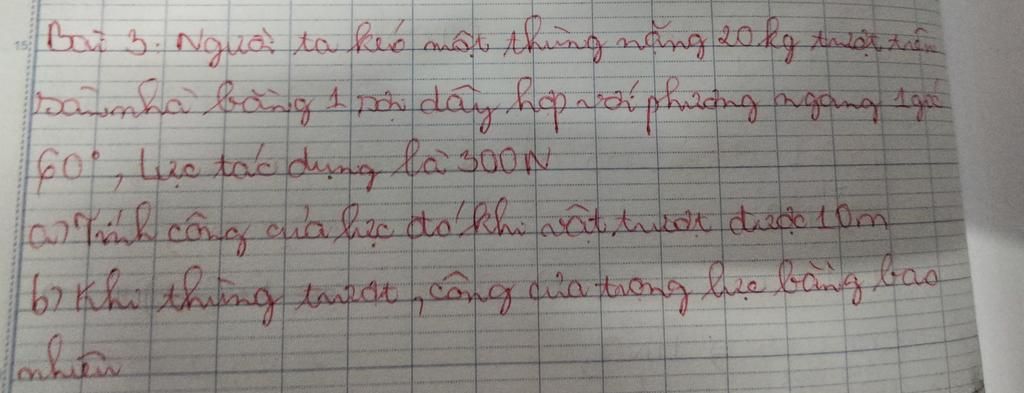 Bài 3: Người ta kéo một thùng nặng 20kg trượt trên
sàn nhà bằng 1 sợi dây hợp với phương ngang 1 góc
60°, lực tác dụng là 300N
a) Tính công của lực đó khi vật trượt được 10m
b) Khi thùng trượt, công của trọng lực bằng bao
nhiêu